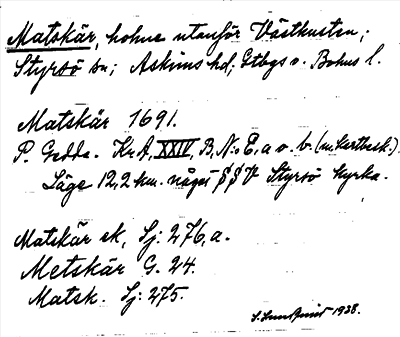 Matskär, holme utanför Västkusten;
Styrsö sn; Askims hd; Gtbgs o. Bohus l.
Matskär 1691.
P. Gedda. Kr.A, XXIV, B, N:o E, a o. b. (m. kartbesk.).
Läge 12,2 km. något S S V Styrsö kyrka.
Matskär sk, Sj: 276, a.
Metskär G. 24.
Matsk. Sj: 275.
1938.